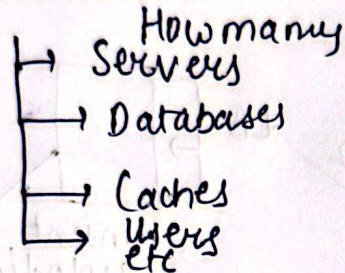 How many
Servers
Databases
Caches
Users
etc